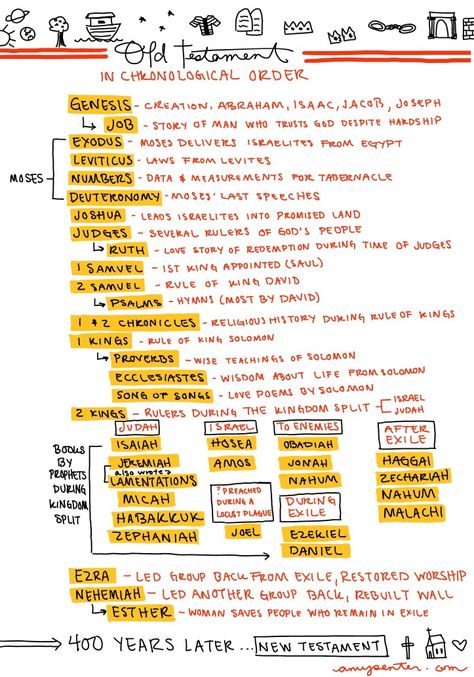 Old Testament
IN CHRONOLOGICAL ORDER
GENESIS - CREATION, ABRAHAM, ISAAC, JACOB, JOSEPH
JOB - STORY OF MAN WHO TRUSTS GOD DESPITE HARDSHIP
MOSES
EXODUS - MOSES DELIVERS ISRAELITES FROM EGYPT
LEVITICUS - LAWS FROM LEVITES
NUMBERS - DATA & MEASUREMENTS FOR TABERNACLE
DEUTERONOMY - MOSES' LAST SPEECHES
JOSHUA - LEADS ISRAELITES INTO PROMISED LAND
JUDGES - SEVERAL RULERS OF GOD'S PEOPLE
RUTH - LOVE STORY OF REDEMPTION DURING TIME OF JUDGES
1 SAMUEL - 1ST KING APPOINTED (SAUL)
2 SAMUEL - RULE OF KING DAVID
PSALMS - HYMNS (MOST BY DAVID)
1 & 2 CHRONICLES - RELIGIOUS HISTORY DURING RULE OF KINGS
1 KINGS - RULE OF KING SOLOMON
PROVERBS - WISE TEACHINGS OF SOLOMON
ECCLESIASTES - WISDOM ABOUT LIFE FROM SOLOMON
SONG OF SONGS - LOVE POEMS BY SOLOMON
2 KINGS - RULERS DURING THE KINGDOM SPLIT
ISRAEL
JUDAH
BOOKS
BY
PROPHETS
DURING
KINGDOM
SPLIT
JUDAH
ISAIAH
JEREMIAH
also wrote
LAMENTATIONS
MICAH
HABAKKUK
ZEPHANIAH
ISRAEL
HOSEA
AMOS
? PREACHED
DURING A
LOCUST PLAGUE
JOEL
TO ENEMIES
OBADIAH
JONAH
NAHUM
DURING
EXILE
EZEKIEL
DANIEL
AFTER
EXILE
HAGGAI
ZECHARIAH
NAHUM
MALACHI
EZRA - LED GROUP BACK FROM EXILE, RESTORED WORSHIP
NEHEMIAH - LED ANOTHER GROUP BACK, REBUILT WALL
ESTHER - WOMAN SAVES PEOPLE WHO REMAIN IN EXILE
400 YEARS LATER... NEW TESTAMENT
amysenter.com